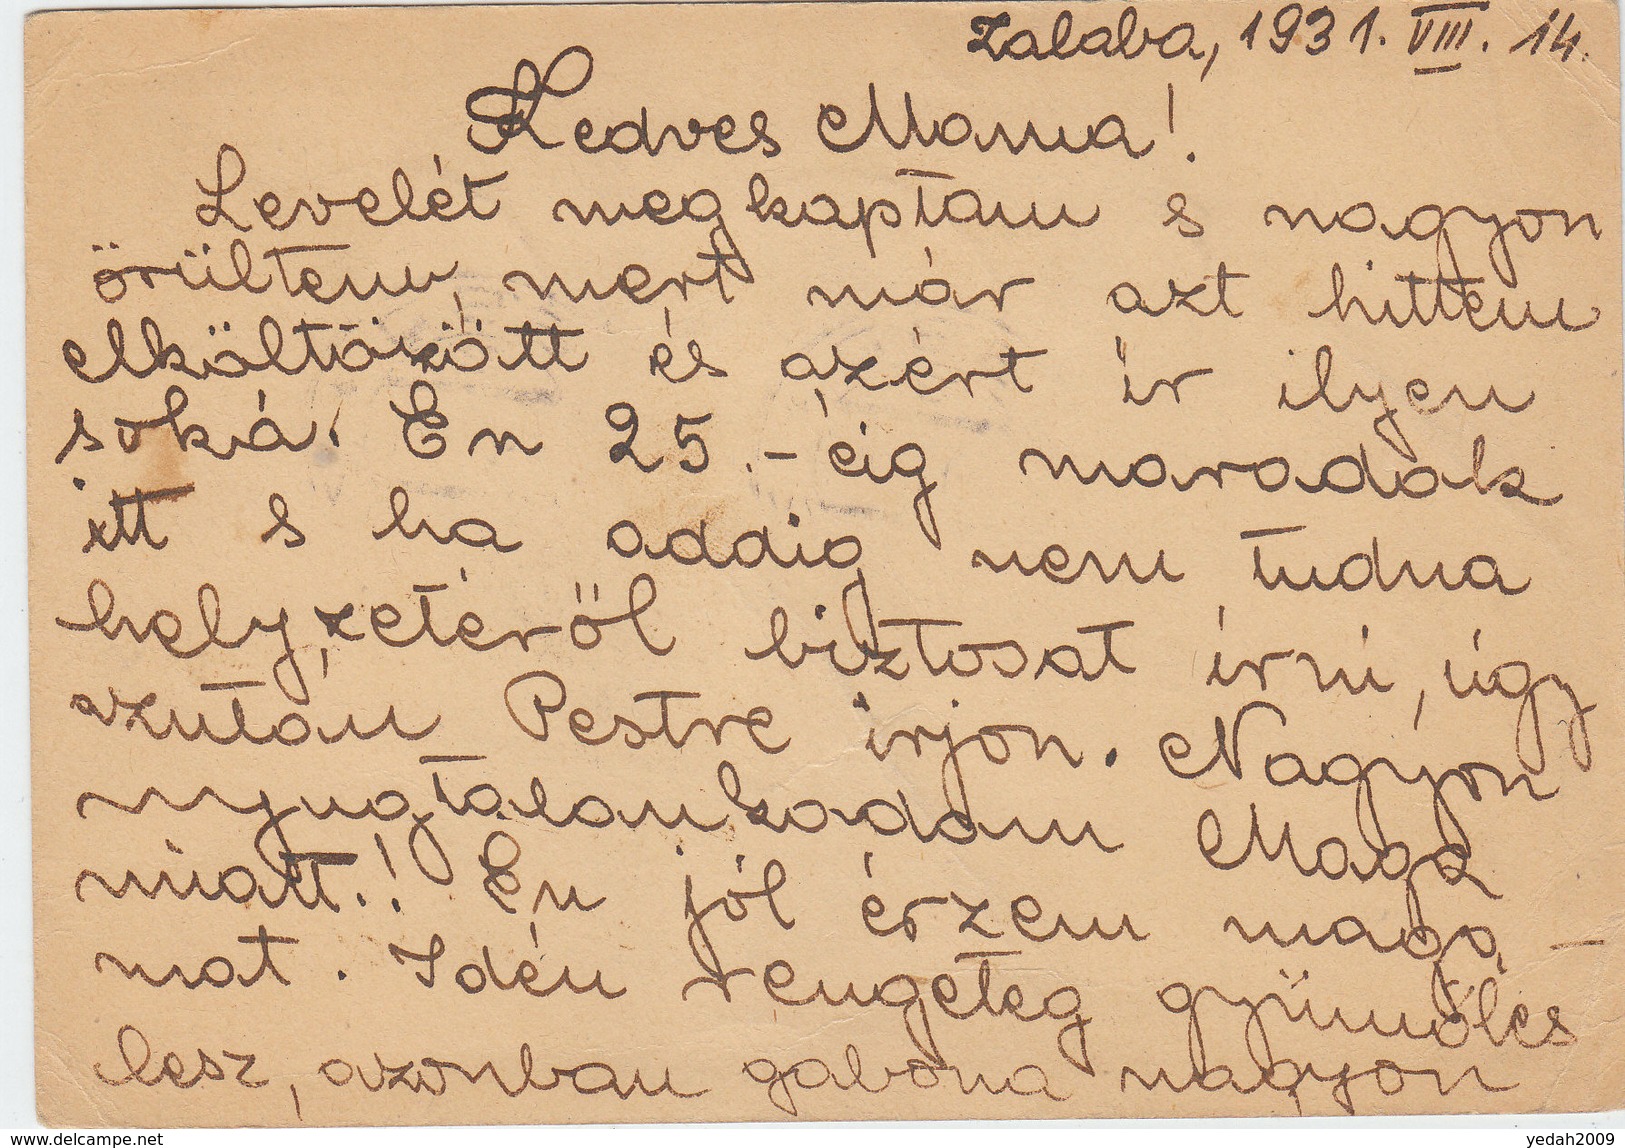 Zalaba, 1931. VIII. 14.
Kedves Mama!
Levelét megkaptam s nagyon
örültem, mert már azt hittem
elköltözött és azért ír ilyen
soká. Én 25.-éig maradok
itt s ha addig nem tudna
helyzetéről biztosat írni, úgy
azután Pestre írjon. Nagyon
nyugtalankodom Maga
miatt.! Én jól érzem maga-
mat. Idén rengeteg gyümölcs
lesz, azonban gabona nagyon
delcampe.net
yedah2009